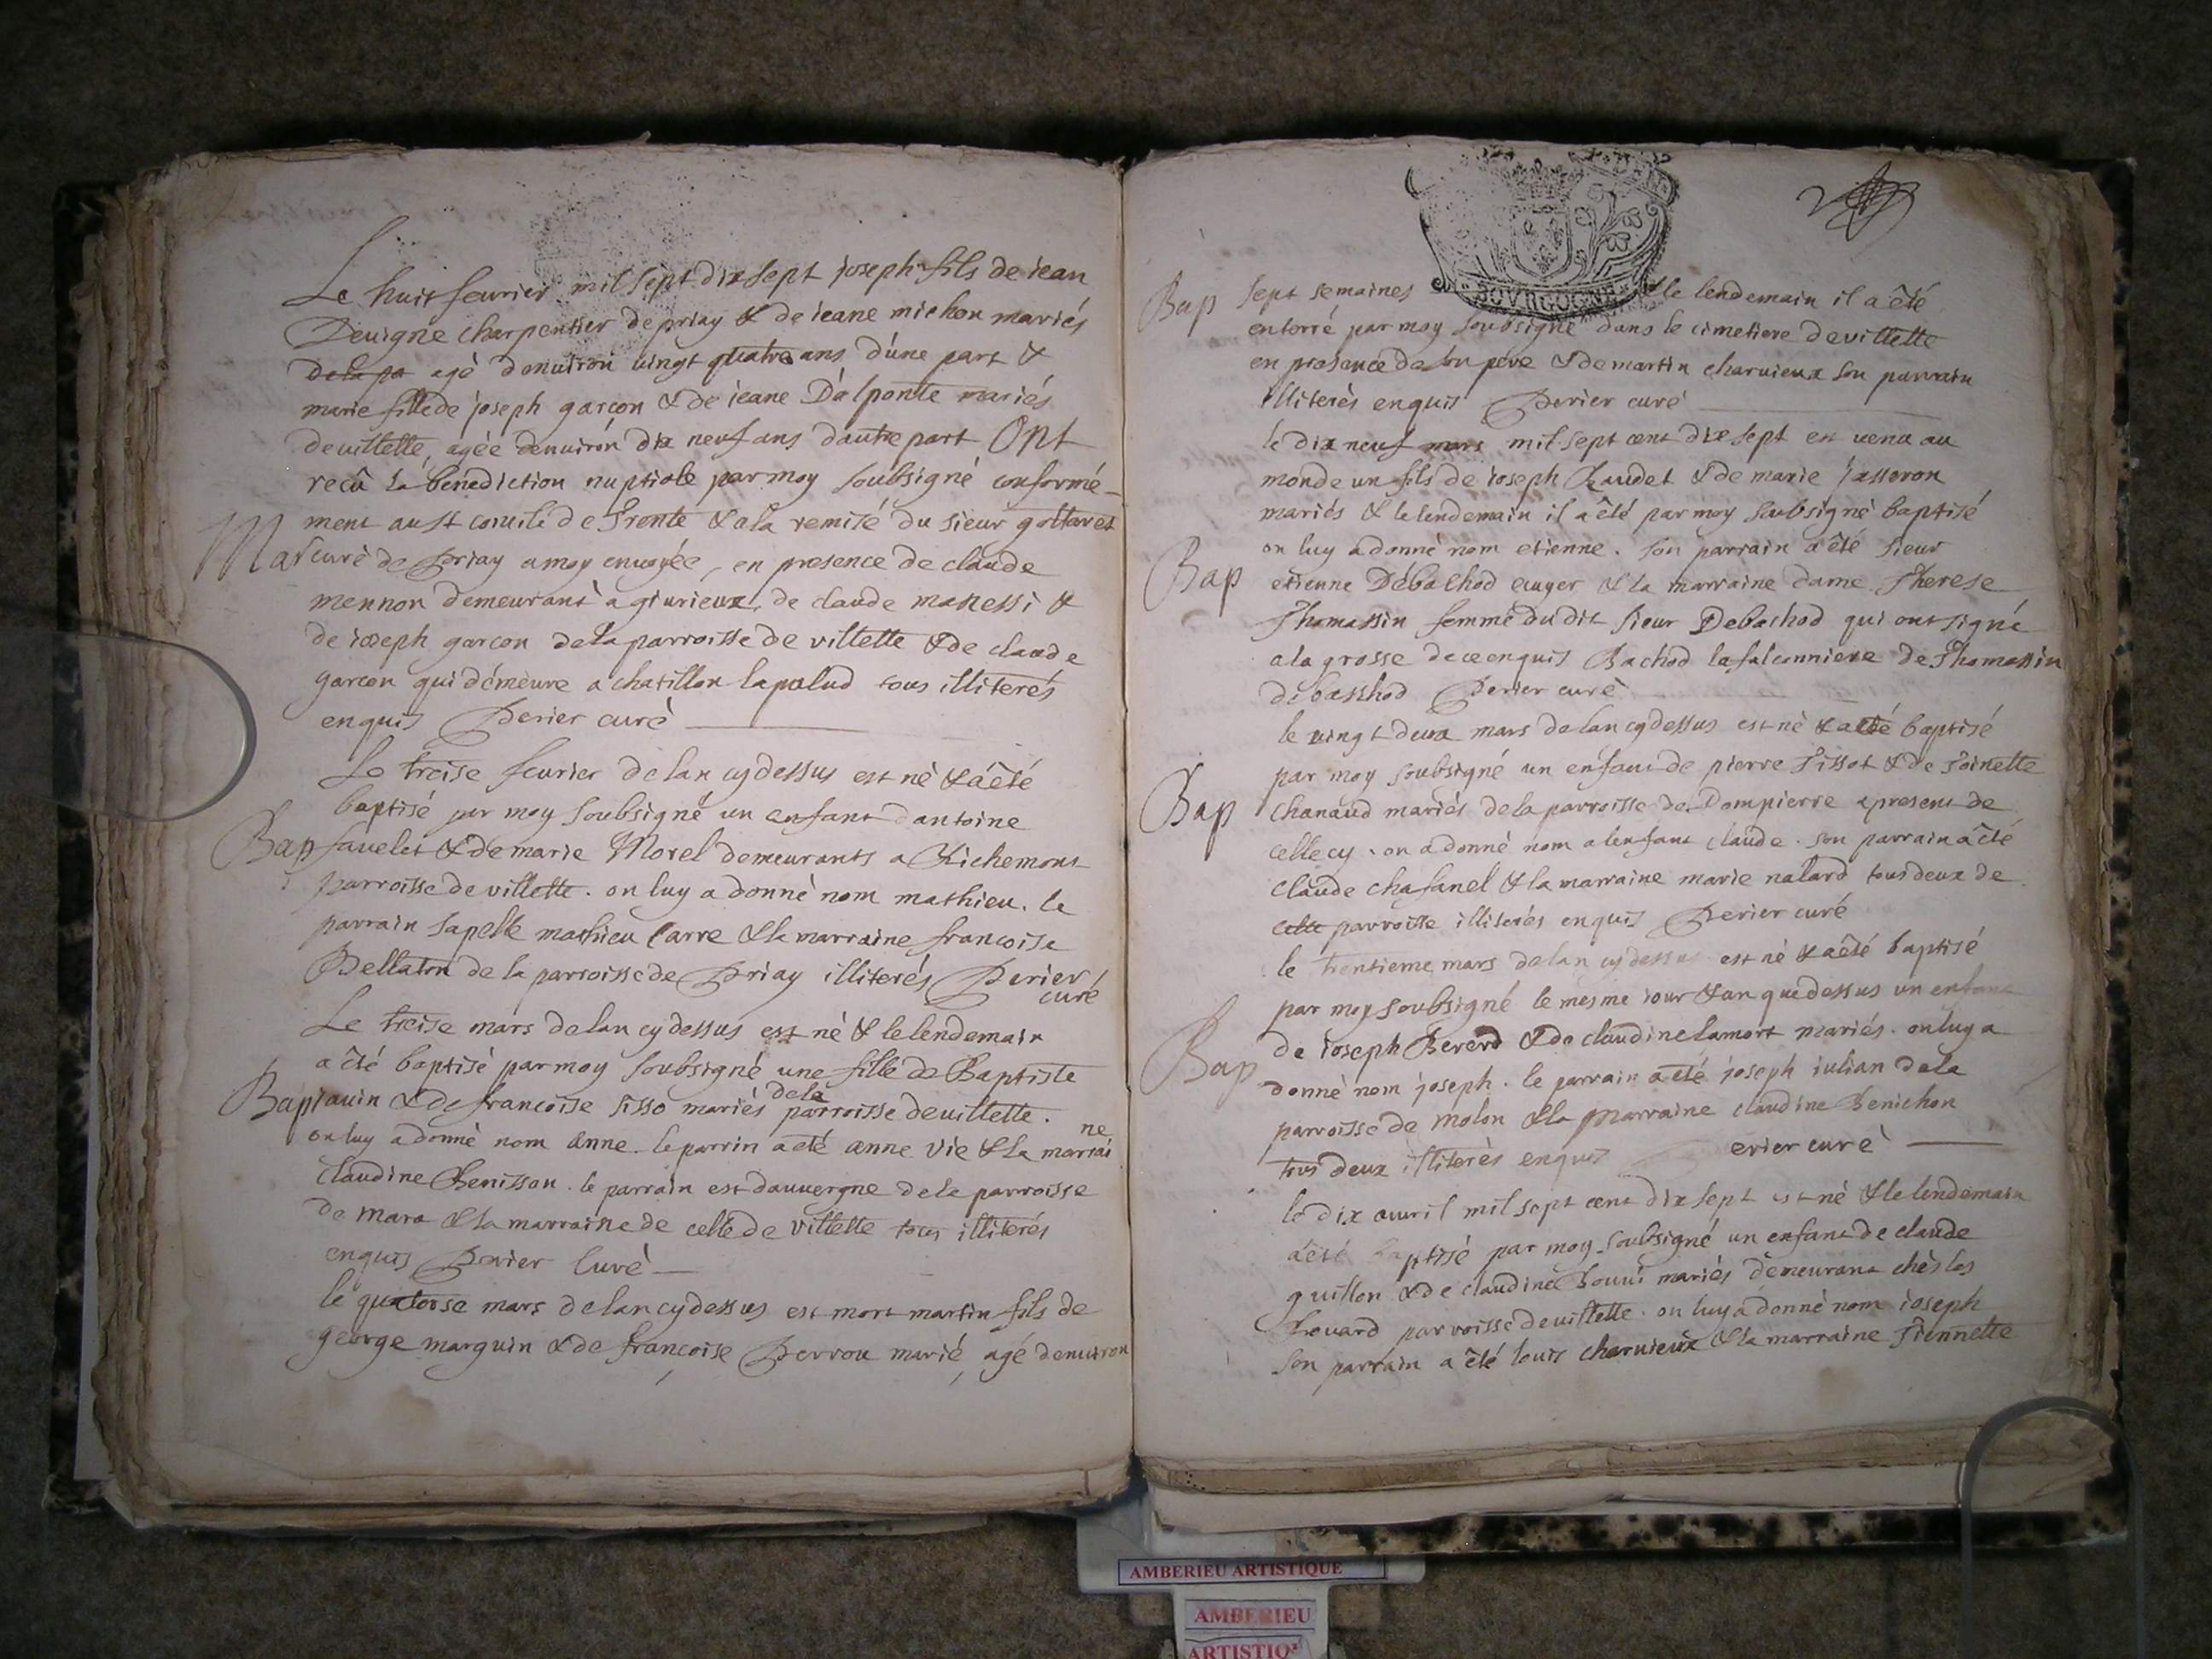 Le huit feurier mil sept dix sept joseph fils de iean
Deuigne charpentier de priay & de ieane michon mariés
de la pa agè denuiron uingt quatre ans d'une part &
marie fille de joseph garçon & de ieane Dalponte mariés
de uillette, agée denuiron dix neuf ans dautre part Ont
recû la benediction nuptiale par moy soubsigné conformé-
ment au st concile de Trente & a la remise du sieur
Mar curè de Priay a moy enuoyée, en presence de claude
mennon demeurant a giurieux, de claude &
de ioseph garcon de la parroisse de villette & de claude
garcon qui démeure a chatillon la palud tous illiterés
enquis Perier curè
Le treise feurier de lan cy dessus est nè & a êté
baptisé par moy soubsigné un enfant dantoine
Bap fauelet & de marie Morel demeurants a Richemont
parroisse de villette. on luy a donnè nom mathieu. le
parrain sapelle mathieu carre & la marraine francoise
Bellaton de la parroisse de Priay illiterés Perier
curé
Le treise mars de lan cy dessus est nè & le lendemain
a êté baptisè par moy soubsigné une fille de Baptiste
Bap iauin & de francoise sisso mariés de la parroisse de uillette.
on luy a donnè nom anne. le parrin a eté anne vie & la marrai
ne
claudine Benisson. le parrain est dauuergne de la parroisse
de mara & la marraine de celle de villette tous illiterés
enquis Perier Curè
le quatorse mars de lan cy dessus est mort martin fils de
george marguin & de francoise Perrou marié, agé denuiron
Bap sept semaines & le lendemain il a êté
BOVRGOGNE
enterré par moy soubsigné dans le cimetiere de villette
en presence de son pere & de martin charuieux son parrain
illiterès enquis Perier curé
le dix neuf mars mil sept cent dix sept est uenu au
monde un fils de ioseph Baudet & de marie jasseron
mariés & le lendemain il a êté par moy soubsigné baptisé
on luy a donné nom etienne. son parrain a êté sieur
Bap etienne Debachod ecuyer & la marraine dame Therese
Thomassin femme du dit sieur Debachod qui ont signé
a la grosse de ce enquis Bachod la falconniere de Thomassin
debachod Perier curè
le uingt deux mars de lan cy dessus est nè & a eté baptisé
par moy soubsigné un enfant de pierre Tissot & de Toinette
Bap chanaud mariés de la parroisse de Dompierre a present de
celle cy. on a donné nom a lenfant claude. son parrain a êté
claude chafanel & la marraine marie nalard tous deux de
cette parroisse illiterés enquis Perier curé
le trentieme mars de lan cy dessus est nè & a êté baptisé
par moy soubsigné le mesme iour & an que dessus un enfant
Bap de ioseph Bererd & de claudine lamort mariés. on luy a
donné nom joseph. le parrain a eté joseph iulian de la
parroisse de molon & la marraine claudine Benichon
tous deux illiterès enquis erier curè
le dix auuril mil sept cent dix sept est nè & le lendemain
a êté baptisé par moy soubsigné un enfant de claude
guillon & de claudine mariés démeurant chès les
Bouard parroisse de uillette. on luy a donné nom ioseph
son parrain a êté louis charuieux & la marraine Tiennette
AMBERIEU ARTISTIQUE
AMBERIEU
ARTISTIQ